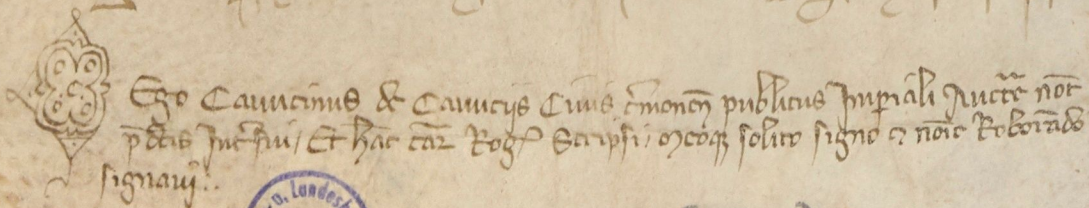 Ego Cavicinus de Caviciis Civis c̄monen̄ publicus Imperiali Auctē not̄
p̄dc̄is Int̄fui, Et hāc cār̄ Roḡ Scripsi, meoq̨ solito signo et noīe Roborādo
signavi.
v. Landesb